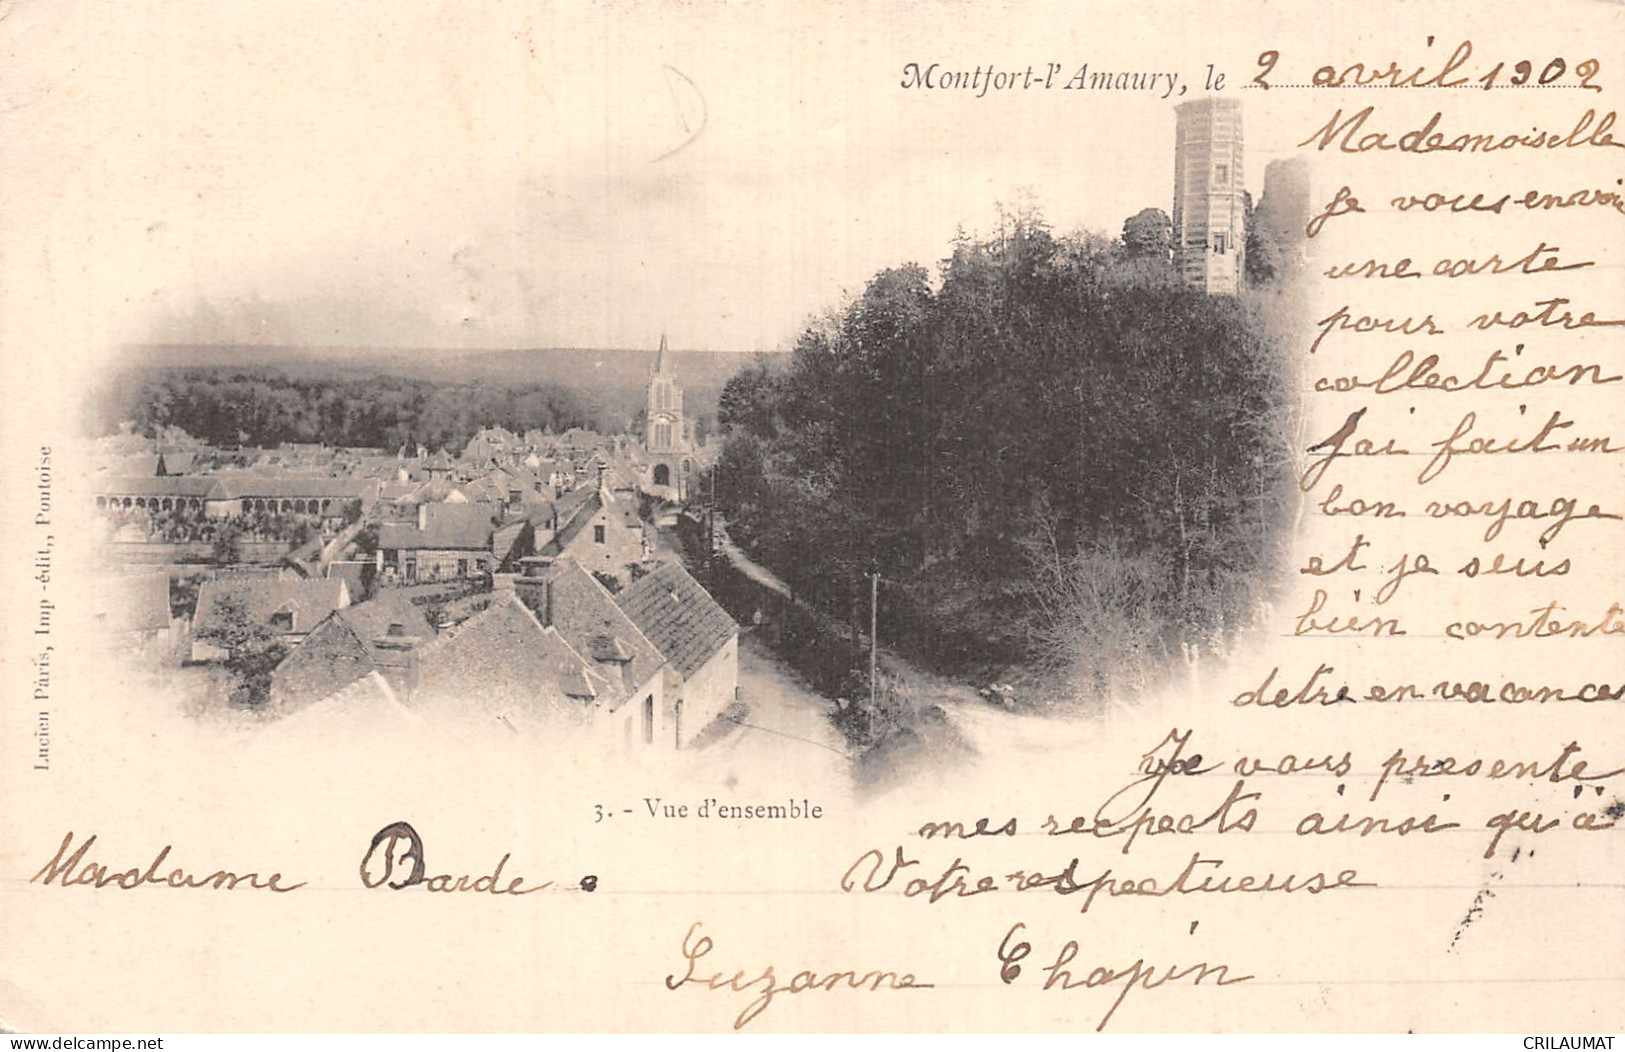 Montfort-l'Amaury, le 2 avril 1902
Mademoiselle
je vous envoie
une carte
pour votre
collection
J'ai fait un
bon voyage
et je suis
bien contente
detre en vacances
Je vous presente
mes respects ainsi qu'à
Madame Barde.
Votre respectueuse
Suzanne Chapin
3. - Vue d'ensemble
Lucien Pâris, Imp-édit., Pontoise
delcampe.net
CRILAUMAT